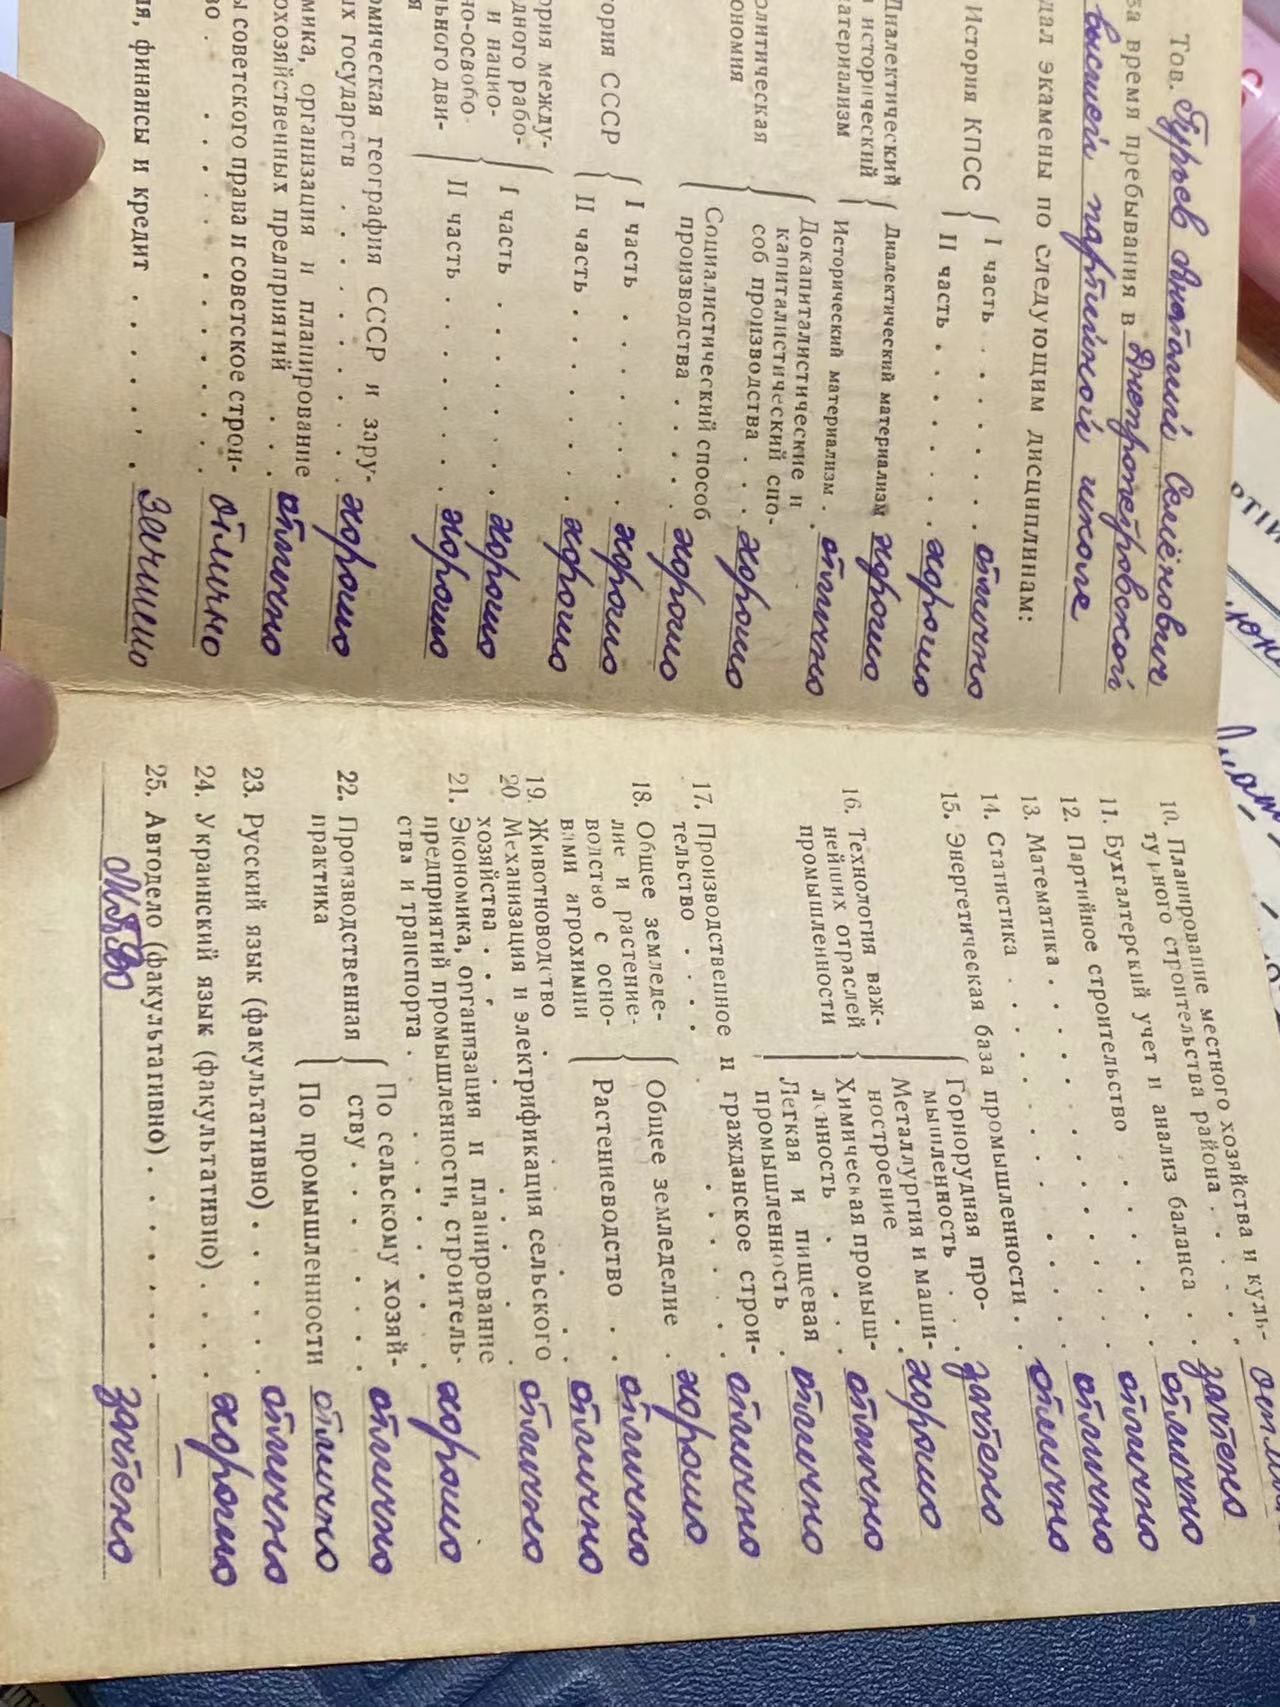 Тов. Гурьев Анатолий Семёнович
за время пребывания в Днепропетровской
высшей партийной школе
дал экзамены по следующим дисциплинам:
История КПСС
I часть . . . . . . отлично
II часть . . . . . . хорошо
Диалектический
и исторический
материализм
Диалектический материализм хорошо
Исторический материализм . отлично
олитическая
ономия
Докапиталистические и
капиталистический спо-
соб производства . . хорошо
Социалистический способ
производства . . . . хорошо
тория СССР
I часть . . . . . . хорошо
II часть . . . . . . хорошо
ория между-
одного рабо-
и нацио-
но-освобо-
льного дви-
я
I часть . . . . . . хорошо
II часть . . . . . . хорошо
омическая география СССР и зару-
ых государств . . . . . . . хорошо
мика, организация и планирование
охозяйственных предприятий . . . отлично
ы советского права и советское строи-
во . . . . . . . . . отлично
ия, финансы и кредит . . . . . . зачтено
10. Планирование местного хозяйства и куль-
турного строительства района . . . . зачтено
11. Бухгалтерский учет и анализ баланса . . отлично
12. Партийное строительство . . . . . . отлично
13. Математика . . . . . . . . отлично
14. Статистика . . . . . . . . отлично
15. Энергетическая база промышленности . . зачтено
16. Технология важ-
нейших отраслей
промышленности
Горнорудная про-
мышленность . . хорошо
Металлургия и маши-
ностроение . отлично
Химическая промыш-
ленность . . . . отлично
Легкая и пищевая
промышленность . отлично
17. Производственное и гражданское строи-
тельство . . . . . . . . хорошо
18. Общее земледе-
лие и растение-
водство с осно-
вами агрохимии
Общее земледелие . отлично
Растениеводство . . отлично
19. Животноводство . . . . . отлично
20. Механизация и электрификация сельского
хозяйства . . . . . .
21. Экономика, организация и планирование
предприятий промышленности, строитель-
ства и транспорта . . . . . . . хорошо
22. Производственная
практика
По сельскому хозяй-
ству . . . . . отлично
По промышленности отлично
23. Русский язык (факультативно) . . . . отлично
24. Украинский язык (факультативно) . . . . хорошо
25. Автодело (факультативно) . . . . . .
зачтено